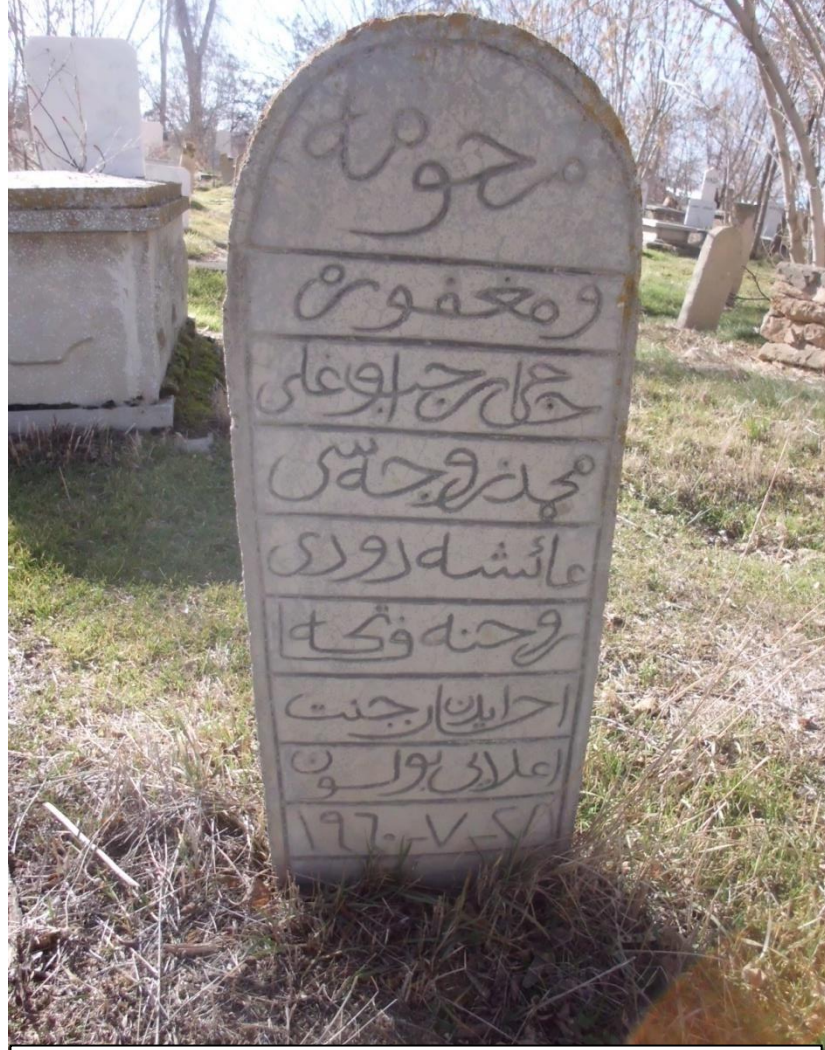 مرحومه
و مغفوره
حاجی رجب اوغلی
محمد زوجه سی
عائشه
روحنه فاتحه
احیا ایدن جنت
اعلایی بولسون
٢١-٧-١٩٦٠